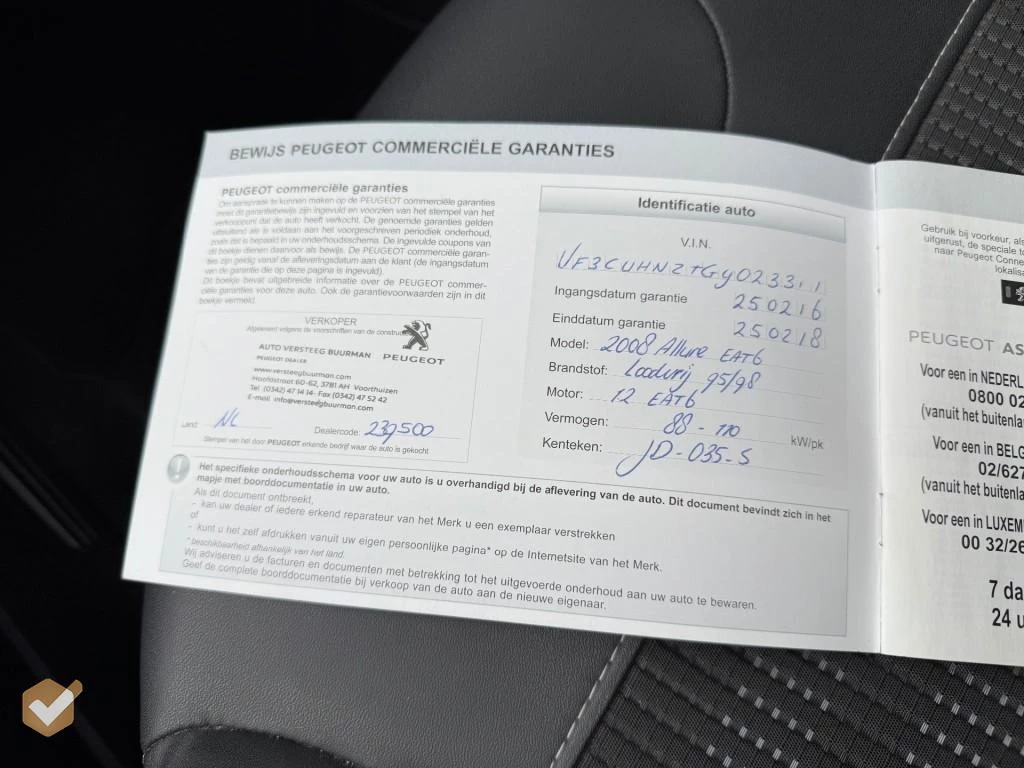 BEWIJS PEUGEOT COMMERCIËLE GARANTIES
PEUGEOT commerciële garanties
Om aanspraak te kunnen maken op de PEUGEOT commerciële garanties
moet dit garantiebewijs zijn ingevuld en voorzien van het stempel van het
verkooppunt dat de auto heeft verkocht. De genoemde garanties gelden
uitsluitend als is voldaan aan het voorgeschreven periodiek onderhoud,
zoals dat is bepaald in uw onderhoudsschema. De ingevulde coupons van
dit boekje dienen daarvoor als bewijs. De PEUGEOT commerciële garan-
ties zijn geldig vanaf de afleveringsdatum aan de klant (de ingangsdatum
van de garantie die op deze pagina is ingevuld).
Dit boekje bevat uitgebreide informatie over de PEUGEOT commer-
ciële garanties voor deze auto. Ook de garantievoorwaarden zijn in dit
boekje vermeld.
VERKOPER
Afgeleverd volgens de voorschriften van de constructeur
AUTO VERSTEEG BUURMAN
PEUGEOT DEALER
PEUGEOT
www.versteegbuurman.com
Hoofdstraat 60-62, 3781 AH Voorthuizen
Tel (0342) 47 14 14 - Fax (0342) 47 52 42
E-mail info@versteegbuurman.com
Land: NL Dealercode: 239500
Stempel van het door PEUGEOT erkende bedrijf waar de auto is gekocht
Identificatie auto
V.I.N.
Ingangsdatum garantie 250216
Einddatum garantie 250218
Model: 2008 Allure EAT6
Brandstof: Loodvrij 95/98
Motor: 12 EAT6
Vermogen: 88 - 110 kW/pk
Kenteken: JD-035-S
Het specifieke onderhoudsschema voor uw auto is u overhandigd bij de aflevering van de auto. Dit document bevindt zich in het
mapje met boorddocumentatie in uw auto.
Als dit document ontbreekt,
- kan uw dealer of iedere erkend reparateur van het Merk u een exemplaar verstrekken
of
- kunt u het zelf afdrukken vanuit uw eigen persoonlijke pagina* op de Internetsite van het Merk.
* beschikbaarheid afhankelijk van het land.
Wij adviseren u de facturen en documenten met betrekking tot het uitgevoerde onderhoud aan uw auto te bewaren.
Geef de complete boorddocumentatie bij verkoop van de auto aan de nieuwe eigenaar.
Gebruik bij voorkeur, als
uitgerust, de speciale t
naar Peugeot Conne
lokalisa
PEUGEOT AS
Voor een in NEDERL
0800 02
(vanuit het buitenla
Voor een in BELG
02/627
(vanuit het buitenla
Voor een in LUXEM
00 32/26
7 da
24 u